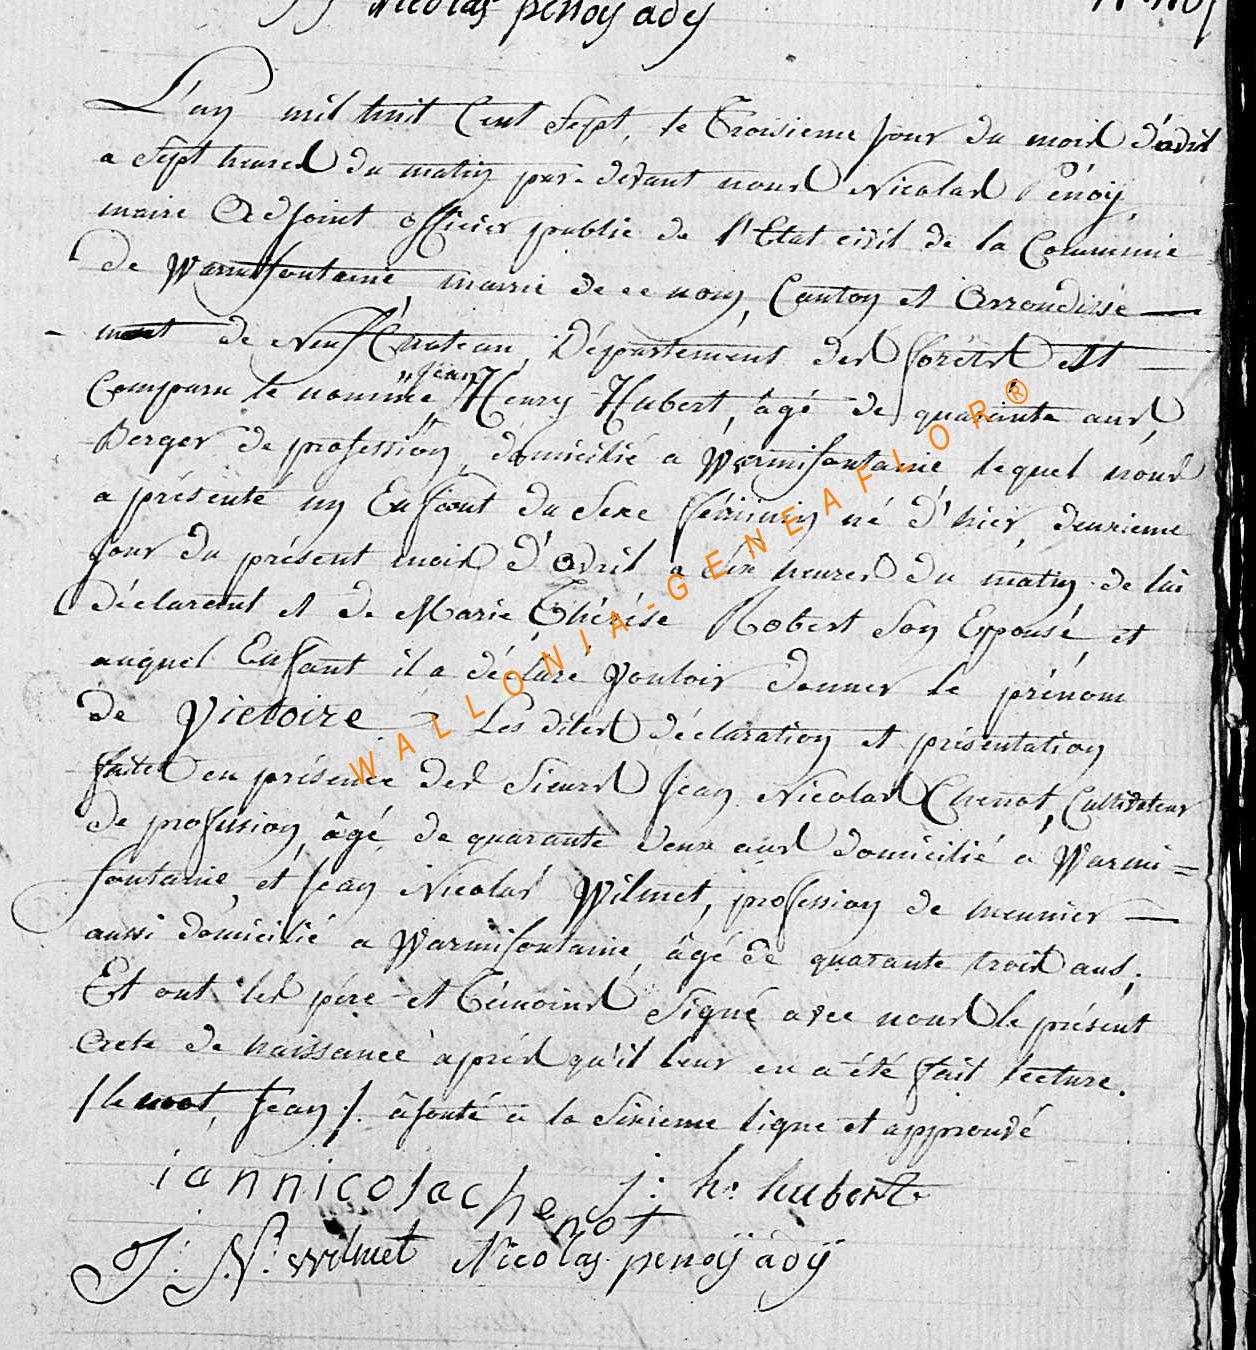 Nicolas penoÿ adÿ
L'an mil huit Cent Sept, le Troisieme jour du mois d'avril
a Sept heures du matin par-devant nous Nicolas Pénoÿ,
maire Adjoint officier public de l'Etat civil de la Commune
de Warmifontaine mairie de ce nom, Canton et Arrondisse—
ment de Neufchateau, Département des forêts est
Comparu le nommé „Jean„ Henry Hubert, âgé de quarante ans,
Berger de profession, domicilié a Warmifontaine lequel nous
a présenté un Enfant du Sexe féminin né d'hier, deuxieme
jour du présent mois d'Avril a dix heures du matin de lui
déclarant et de Marie Thérése Robert Son Epouse, et
auquel Enfant il a déclaré vouloir donner le prénom
de Victoire Les dites déclaration et présentation
faites en présence des Sieurs Jean Nicolas Chenot, Cultivateur
de profession, âgé de quarante deux ans domicilié a Warmi=
fontaine, et Jean Nicolas Wilmet, profession de meunier —
aussi domicilié a Warmifontaine, âgé de quarante trois ans,
Et ont les père et Témoins Signé avec nous le présent
Acte de naissance après qu'il leur en a été fait lecture.
/le mot, Jean./ âjouté à la Sixieme ligne et approuvé
iannicolache not j: h: hubert
J: N: wilmet Nicolas penoÿ adÿ
WALLONIA-GENEAFLOR®